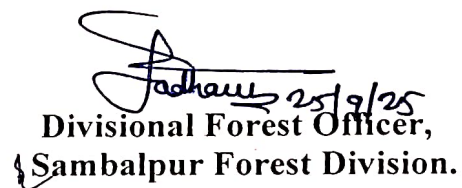 25/9/25
Divisional Forest Officer,
Sambalpur Forest Division.